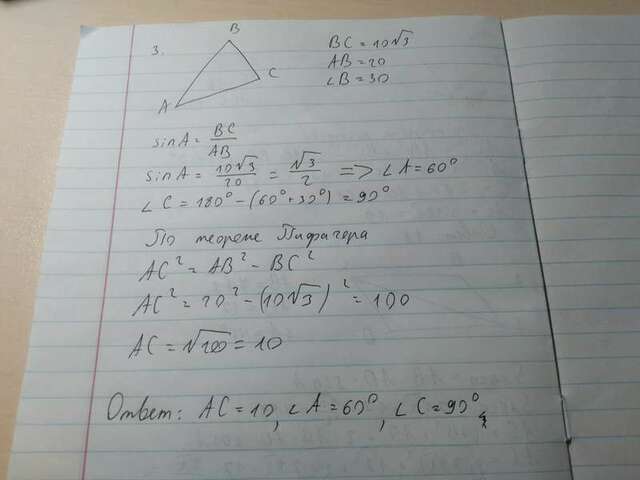 3.
B
A
C
BC = 10√3
AB = 20
∠B = 30
sin A = BC/AB
sin A = 10√3/20 = √3/2 => ∠A = 60°
∠C = 180° - (60° + 30°) = 90°
По теореме Пифагора
AC² = AB² - BC²
AC² = 20² - (10√3)² = 100
AC = √100 = 10
Ответ: AC = 10, ∠A = 60°, ∠C = 90°